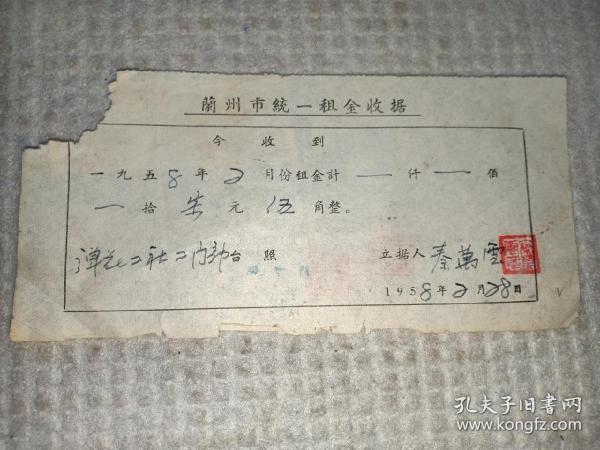 蘭州市統一租金收据
今收到
一九五8年2月份租金計一仟一佰
一拾柒元伍角整。
弹花二社二门部台照
立据人 秦萬雲
1958年2月28日
孔夫子旧书网
www.kongfz.com